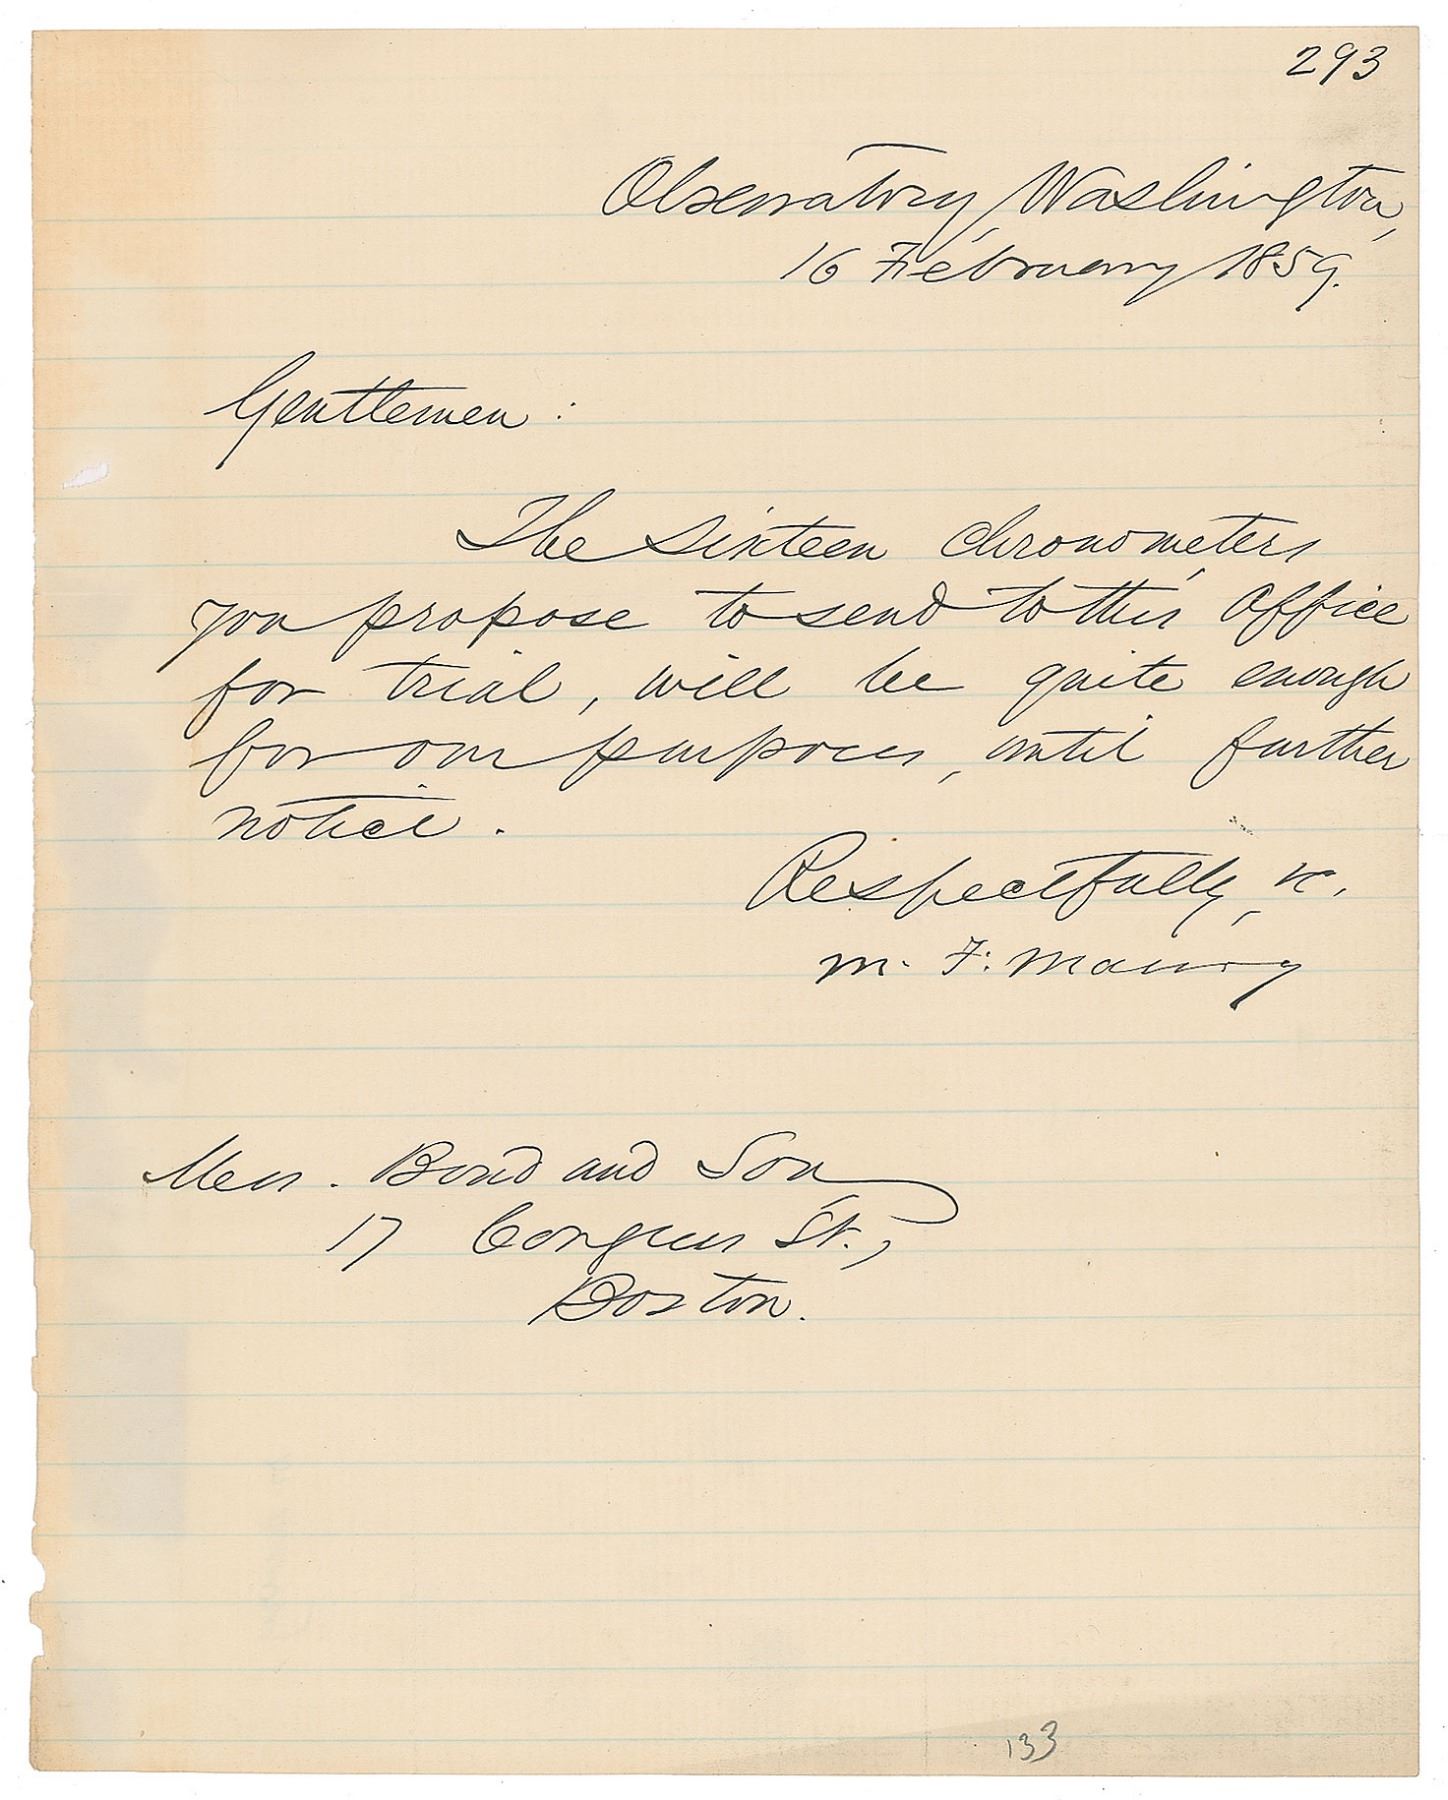 293
Observatory, Washington,
16 February 1859.
Gentlemen:
The sixteen chronometers
you propose to send to this Office
for trial, will be quite enough
for our purposes, until further
notice.
Respectfully, &c.
M. F. Maury
Mess. Bond and Son
17 Congress St.,
Boston.
133